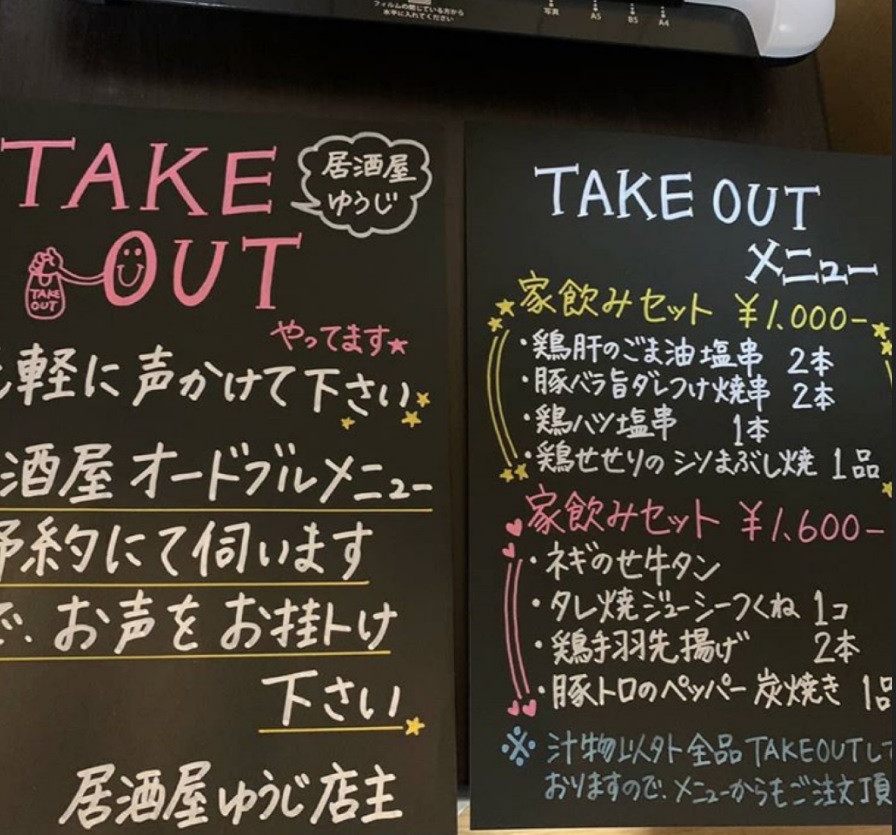 フィルムの閉じている方から
水平に入れてください
写真
A5
B5
A4
TAKE
OUT
居酒屋
ゆうじ
TAKE
OUT
やってます
軽に声かけて下さい
酒屋オードブルメニュー
予約にて伺います
で、お声をお掛け
下さい
居酒屋ゆうじ店主
TAKE OUT
メニュー
家飲みセット ¥1.000-
・鶏肝のごま油塩串 2本
・豚バラ旨ダレつけ焼串 2本
・鶏ハツ塩串 1本
・鶏せせりのシソまぶし焼 1品
家飲みセット ¥1.600-
・ネギのせ牛タン
・タレ焼ジューシーつくね 1コ
・鶏手羽先揚げ 2本
・豚トロのペッパー炭焼き 1品
※汁物以外全品TAKEOUTして
おりますので、メニューからもご注文頂